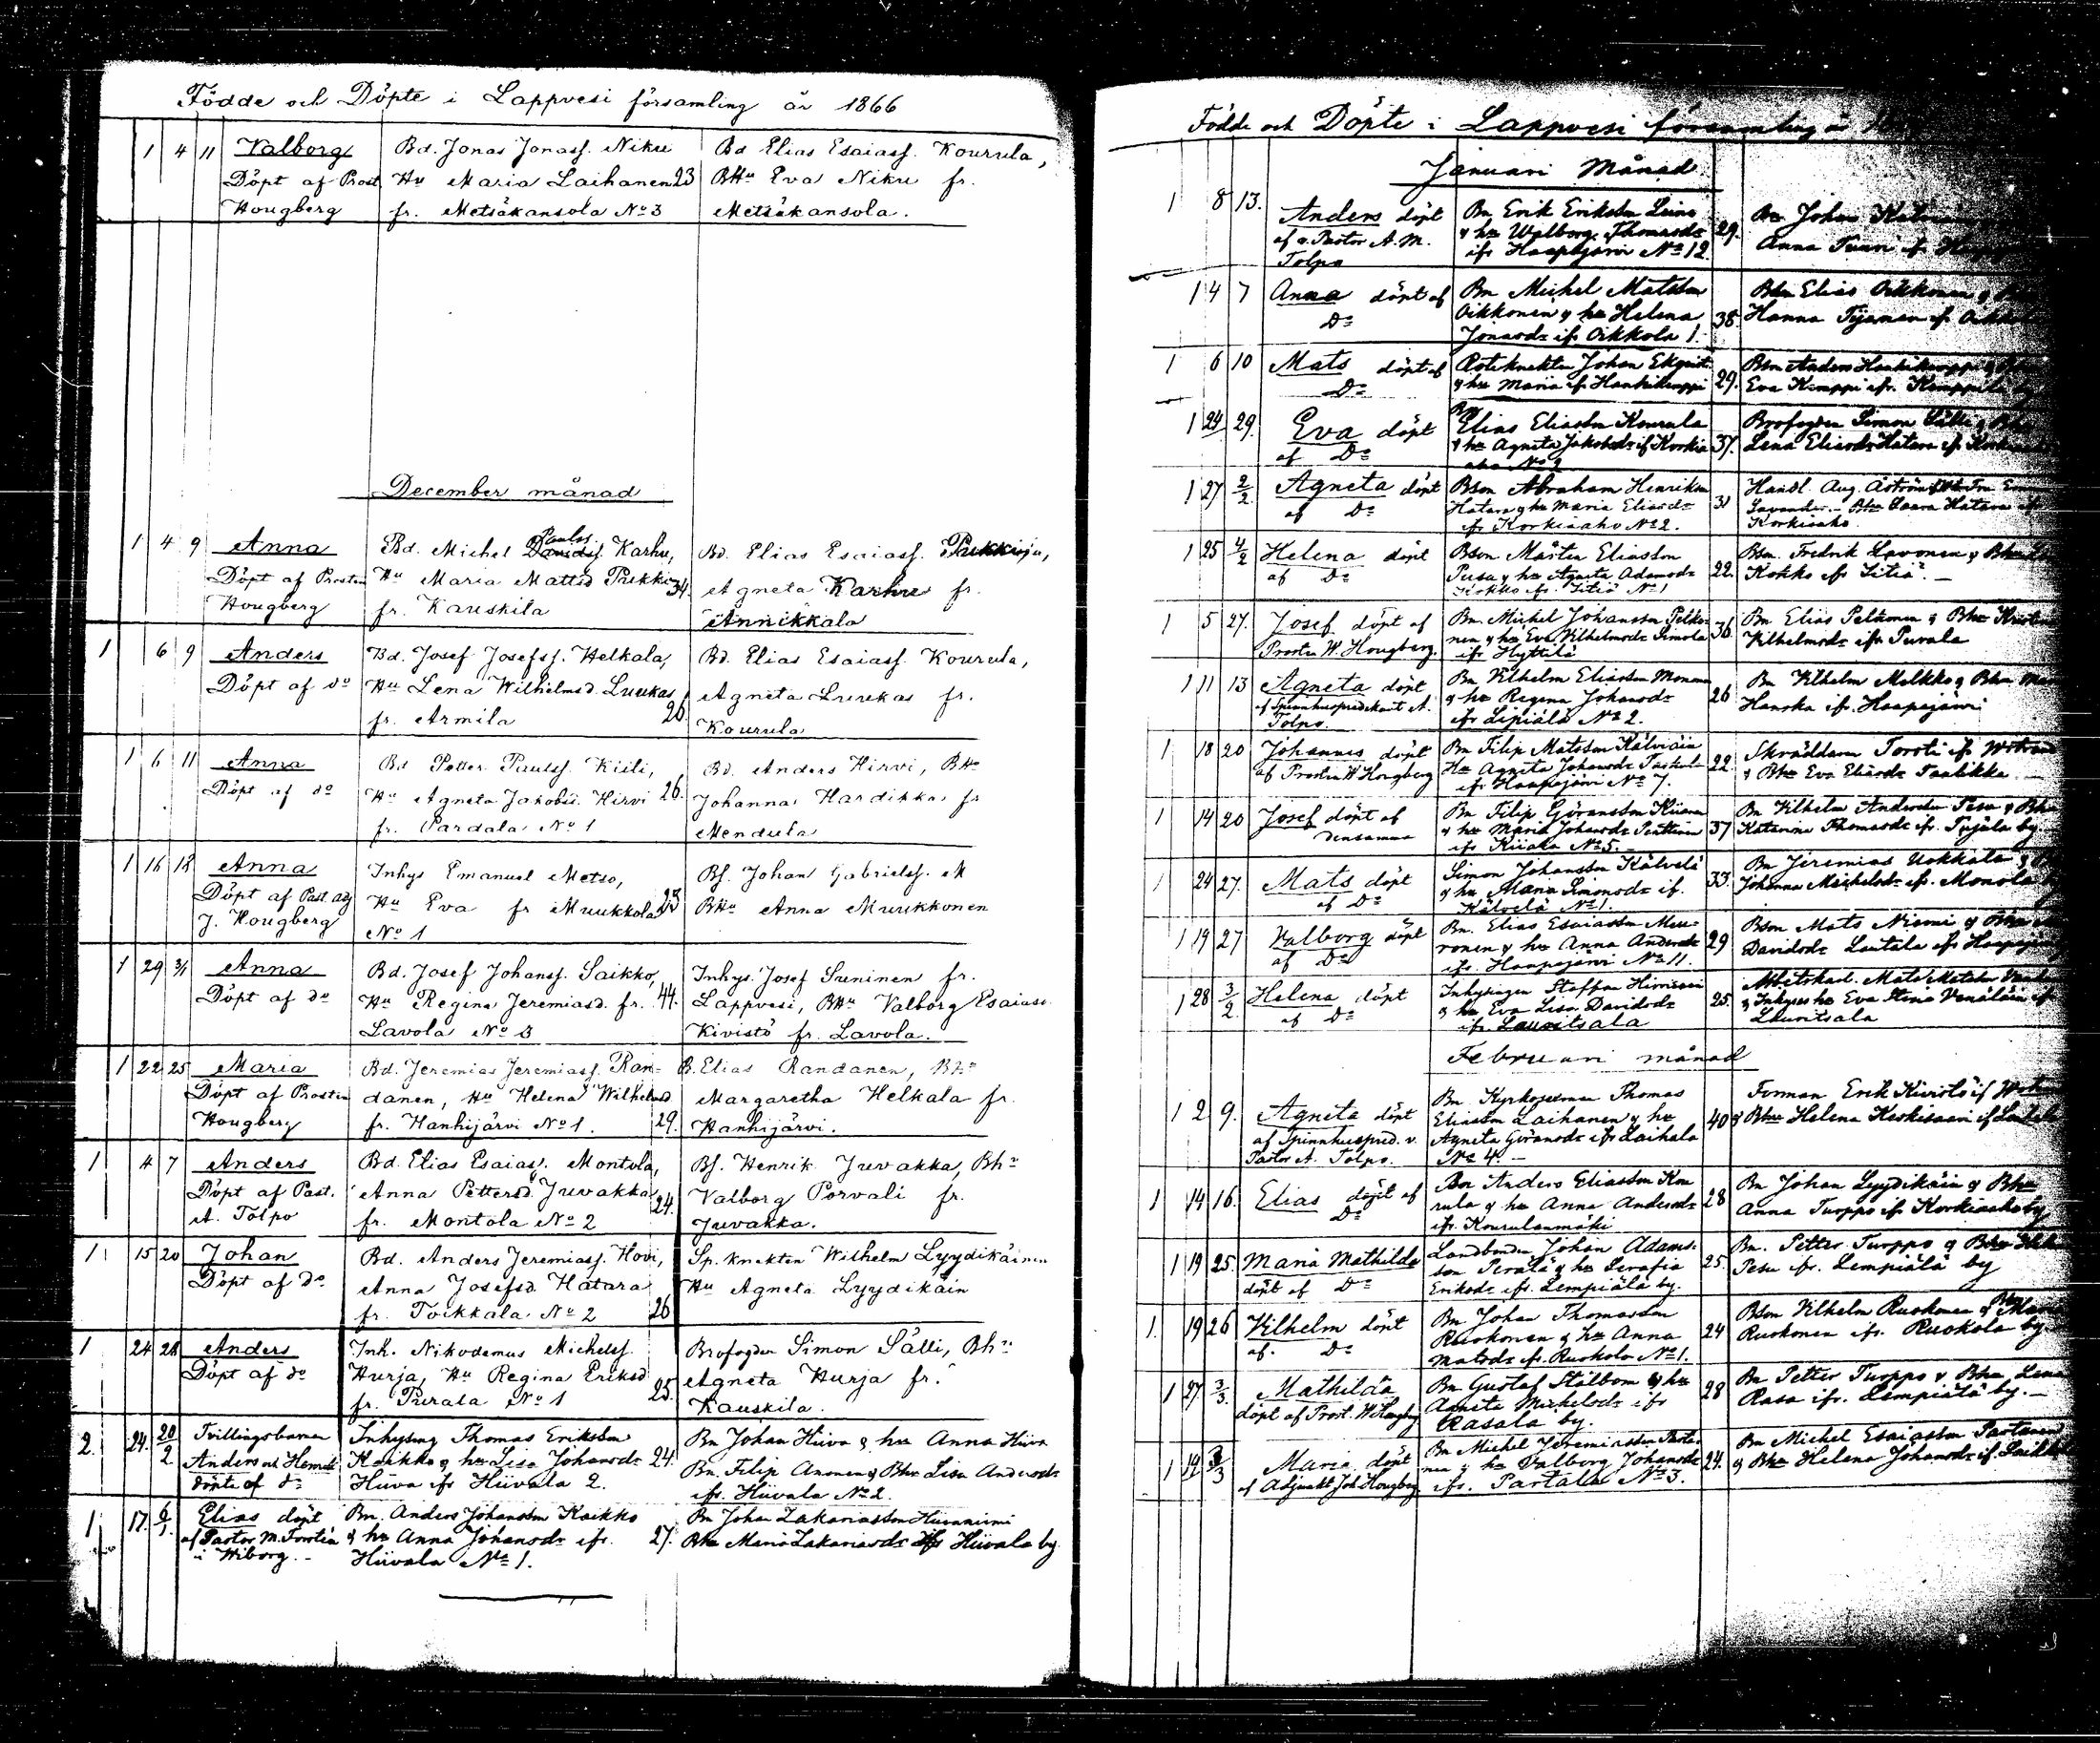 Födde och Döpte i Lappvesi församling år 1866
1 4 11 Valborg Bd. Jonas Jonasf. Niku Bd Elias Esaiasf. Kourula,
Döpt af Prost. Hu Maria Laihanen 23 BHu Eva Niku fr.
Hougberg fr. Metsäkansola No 3 Metsäkansola.
December månad
Paulus
1 4 9 Anna Bd. Michel Davidsf. Karhu, Bd. Elias Esaiasf.
Döpt af Prosten Hu Maria Mattsd Pukki 34. Agneta Karhu fr.
Hougberg fr. Kauskila Annikkala
1 6 9 Anders Bd. Josef Josefsf. Helkala, Bd. Elias Esaiasf. Kourula,
Döpt af do Hu Lena Wilhelmsd. Luukas, Agneta Luukas fr.
fr. Armila 26. Kourula
1 6 11 Anna Bd Petter Paulsf. Kiili, Bd. Anders Hirvi, BHu
Döpt af do Hu Agneta Jakobsd. Hirvi 26. Johanna Hardikka fr
fr. Pardala No 1 Mendula
1 16 18 Anna Inhys Emanuel Metso, Bf. Johan Gabrielsf. M
Döpt af Past. adj Hu Eva fr Muukkola 25 BHu Anna Muukkonen
J. Hougberg No 1
1 29 31 Anna Bd. Josef Johansf. Saikko, Inhys. Josef Suninen fr.
Döpt af do Hu Regina Jeremiasd. fr. 44. Lappvesi, BHu Valborg Esaiasd.
Lavola No 3 Kivistö fr. Lavola.
1 22 25 Maria Bd. Jeremias Jeremiasf. Ran= B. Elias Randanen, BHu
Döpt af Prosten danen, Hu Helena Wilhelmsd Margaretha Helkala fr.
Hougberg fr. Hanhijärvi No 1. 29. Hanhijärvi.
1 4 7 Anders Bd. Elias Esaiasf. Montola, Bf. Henrik Juvakka, Bhu
Döpt af Past. Anna Pettersd. Juvakka Valborg Porvali fr.
A. Tolpo fr. Montola No 2 24. Juvakka.
1 15 20 Johan Bd. Anders Jeremiasf. Hovi, Sp. knekten Wilhelm Lyydikäinen
Döpt af do Anna Josefsd. Hatara Hu Agneta Lyydikäin
fr. Toikkala No 2 26
1 24 28 Anders Inh. Nikodemus Michelsf. Brofogden Simon Sälli, Bhu
Döpt af do Hurja, Hu Regina Eriksd Agneta Hurja fr.
fr. Purala No 1 25. Kauskila.
2. 24. 20/2 Tvillingsbarnen Inhysing Thomas Eriksson Bn Johan Hiiva & hu Anna Hiiva
Anders och Kaikko & hu Lisa Johansdr 24. Bn. Filip Anonen & Bhu Lisa Andersdr
döpte af do Hiiva ifr Hiivala 2. ifr. Hiivala No 2.
1 17. 6/1. Elias döpt Bn. Anders Johansson Kaikko Bn Johan Zakariasson Hiivaniemi
af Pastor M. Forstén & hu Anna Johansdr ifr. 27. Bhu Maria Zakariasdr ifr Hiivala by.
i Wiborg. Hiivala No 1.
Födde och Döpte i Lappvesi församling år
Januari Månad
1 8 13. Anders döpt Bn Erik Eriksson Leino Bn Johan
af v. Pastor A. M. & hu Walborg Thomasdr 29. Anna
Tolpo ifr Haapajärvi No 12.
1 4 7 Anna döpt af Bn Michel Matsson Bson Elias Oikkonen &
Do Oikkonen & hu Helena 38. Hanna
Jonasdr ifr Oikkola 1.
1 6 10 Mats döpt af Johan Ekqvist Bson Anders
Do & hu Maria ifr Hanhikemppi 29. Eva Kemppi ifr. Kemppilä
1 24 29. Eva döpt Bn Elias Eliasson Kourula Brofogden Simon Sälli &
af Do & hu Agneta Jakobsdr if Korkia 37. Lena Eliasdr Hatara ifr
aho No 2
1 27 2/2 Agneta döpt Bson Abraham Henriksson Handl. Aug. Åström
af Do Hatara & hu Maria Eliasdr 31 Hatara
ifr Korkiaaho No 2. Korkiaaho
1 25 4/2 Helena döpt Bson Mårten Eliasson Bsn. Fredrik Lavonen &
af Do Pusa & hu Agneta Adamsdr 22. Kokko ifr Sitiö.
Kokko ifr. Sitiö No 1
1 5 27. Josef döpt af Bn. Michel Johansson Pelko= Bn Elias Pelkonen & Bhu
Prosten W. Hougberg. nen & hu Eva Vilhelmsdr Simola 36. Vilhelmsdr ifr Puvala
ifr Hyttilä
1 11 13 Agneta döpt Bn Vilhelm Eliasson Monanen Bn Vilhelm Melkko & Bhu
af Spinnhuspredikant A. & hu Regina Johansdr 26. Hanska ifr. Haapajärvi
Tolpo. ifr Lipiälä No 2.
1 18 20 Johannes döpt Bn Filip Matsson Kälviäin Skräddaren Torsti ifr
af Prosten W Hougberg Hu Agneta Johansdr 22. & Bhu Eva Eliasdr Taalikka
ifr Haapajärvi No 7.
1 14 20 Josef döpt af Bn Filip Göransson Kiianen Bn Vilhelm Andersson Pesu & Bhu
densamma & hu Maria Johansdr Penttinen 37 Katarina Thomasdr ifr. by
ifr Kiiaka No 5.
1 24 27. Mats döpt Simon Johansson Kälvelä Bn Jeremias Uokkala &
af Do & hu Maria Simonsdr if. 33. Johanna Michelsdr ifr. Monola
Kälvelä No 1.
1 19 27 Valborg döpt Bn. Elias Esaiasson Mu= Bson Mats Niemi &
af Do ronen & hu Anna Andersdr 29 Davidsdr Lautala ifr
ifr. Haapajärvi No 11.
1 28 3/2. Helena döpt Inhysingen Staffan Hirvinen Arbetskarl. Mats
af Do & hu Eva Lisa Davidsdr 25. & hu Eva Stina Venäläin ifr
ifr. Lauritsala Lauritsala
Februari månad
1 2 9. Agneta döpt Bn. Kyrkosexman Thomas Forman Erik Kivistö if
af Spinnhuspred. v. Eliasson Laihanen & hu 40 & Bhu Helena
Pastor A. Tolpo. Agneta Göransdr ifr Laihala
No 4.
1 14 16. Elias döpt af Bn Anders Eliasson Kou Bn Johan Lyydikäin & Bhu
Do rula & hu Anna Andersdr 28 Anna Turppo if Korkiaaho by
ifr. Kourulanmäki
1 19 25. Maria Mathilda Landbonden Johan Adams= Bn. Petter Turppo & Bhu
döpt af Do son Perälä & hu Serafia 25. Pesu ifr. Lempiälä by
Eriksdr ifr. Lempiälä by.
1. 19 26 Vilhelm döpt Bn Johan Thomasson Bson Vilhelm Ruokonen & Bhu
af. Do Ruokonen & hu Anna 24 Ruokonen ifr. Ruokola by.
Matsdr ifr. Ruokola No 1.
1 27 3/3. Mathilda Bn. Gustaf Stålbom & hu Bn Petter Turppo & Bhu Lena
döpt af Prost. W Hougberg Agneta Michelsdr ifr 28 Rasa ifr. Lempiälä by.
Rasala by.
1 14 3/3 Maria döpt Bn Michel Jeremiasson Parta= Bn Michel Esaiasson Partanen
af Adjunkt Joh Hougberg nen & hu Valborg Johansdr 24. & Bhu Helena Johansdr if.
ifr. Partala No 3.